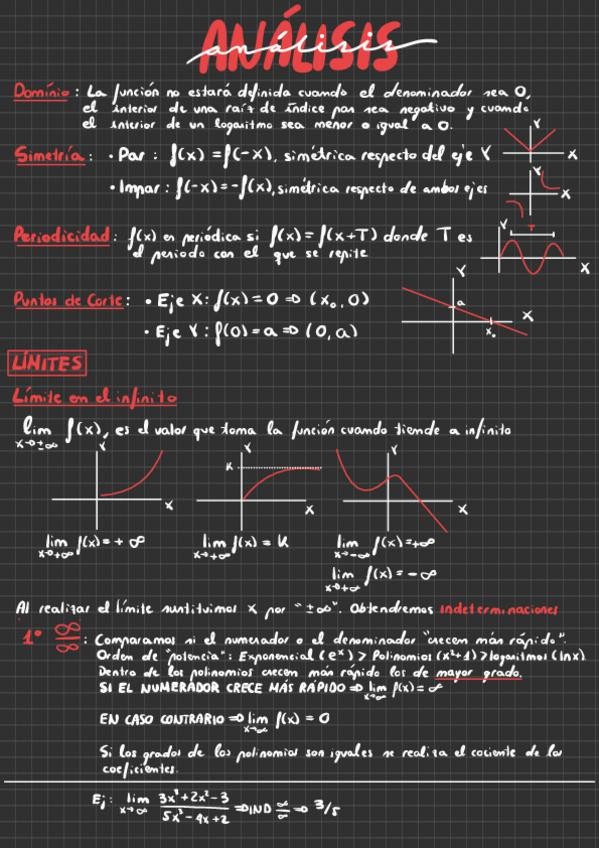 ANÁLISIS
análisis
Dominio: La función no estará definida cuando el denominador sea 0,
el interior de una raíz de índice par sea negativo y cuando
el interior de un logaritmo sea menor o igual a 0.
Simetría: • Par: f(x) = f(-x), simétrica respecto del eje Y
Y
X
• Impar: f(-x)=-f(x), simétrica respecto de ambos ejes
Y
X
Periodicidad: f(x) es periódica si f(x) = f(x+T) donde T es
el periodo con el que se repite
Y
T
X
Puntos de Corte: • Eje X: f(x)=0 ⇒ (x₀, 0)
• Eje Y: f(0)=a ⇒ (0, a)
Y
a
X
x₀
LÍMITES
Límite en el infinito
lim f(x), es el valor que toma la función cuando tiende a infinito
x→±∞
Y
X
K
Y
X
Y
X
lim f(x) = +∞
x→+∞
lim f(x) = K
x→+∞
lim f(x)=+∞
x→-∞
lim f(x) = -∞
x→+∞
Al realizar el límite sustituimos x por "±∞". Obtendremos indeterminaciones
1º ∞/∞: Comparamos si el numerador o el denominador "crecen más rápido".
Orden de "potencia": Exponencial (eˣ) > Polinomios (x²+1) > logaritmos (lnx)
Dentro de los polinomios crecen más rápido los de mayor grado.
SI EL NUMERADOR CRECE MÁS RÁPIDO ⇒ lim f(x) = ∞
x→∞
EN CASO CONTRARIO ⇒ lim f(x) = 0
x→∞
Si los grados de los polinomios son iguales se realiza el cociente de los
coeficientes.
Ej: lim 3x³+2x²-3 / 5x³-4x+2 ⇒ IND ∞/∞ ⇒ 3/5
x→∞